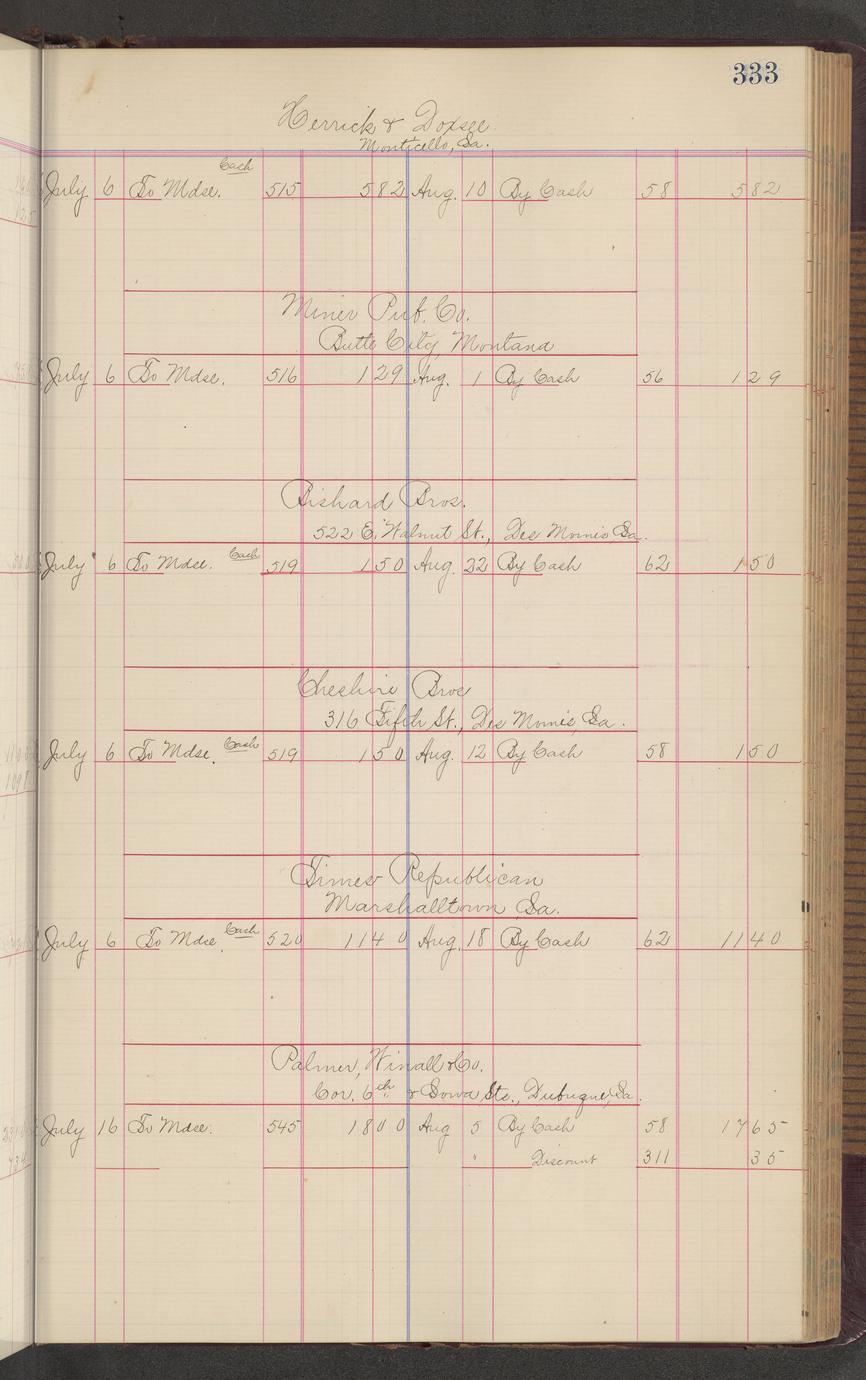 333
Herrick & Doxsee
Monticello, Ia.
July 6 To Mdse. Cash 515 582 Aug. 10 By Cash 58 582
Miner Pub. Co.
Butte City, Montana
July 6 To Mdse. 516 129 Aug. 1 By Cash 56 129
Bishard Bros.
522 E. Walnut St., Des Moines Ia.
July 6 To Mdse. Cash 519 150 Aug. 22 By Cash 62 150
Cheshire Bros
316 Fifth St., Des Moines, Ia.
July 6 To Mdse. Cash 519 150 Aug. 12 By Cash 58 150
Times Republican
Marshalltown, Ia.
July 6 To Mdse. Cash 520 1140 Aug. 18 By Cash 62 1140
Palmer, Winall & Co.
Cor. 6th & Iowa Sts., Dubuque, Ia.
July 16 To Mdse. 545 1800 Aug 5 By Cash 58 1765
" Discount 311 35